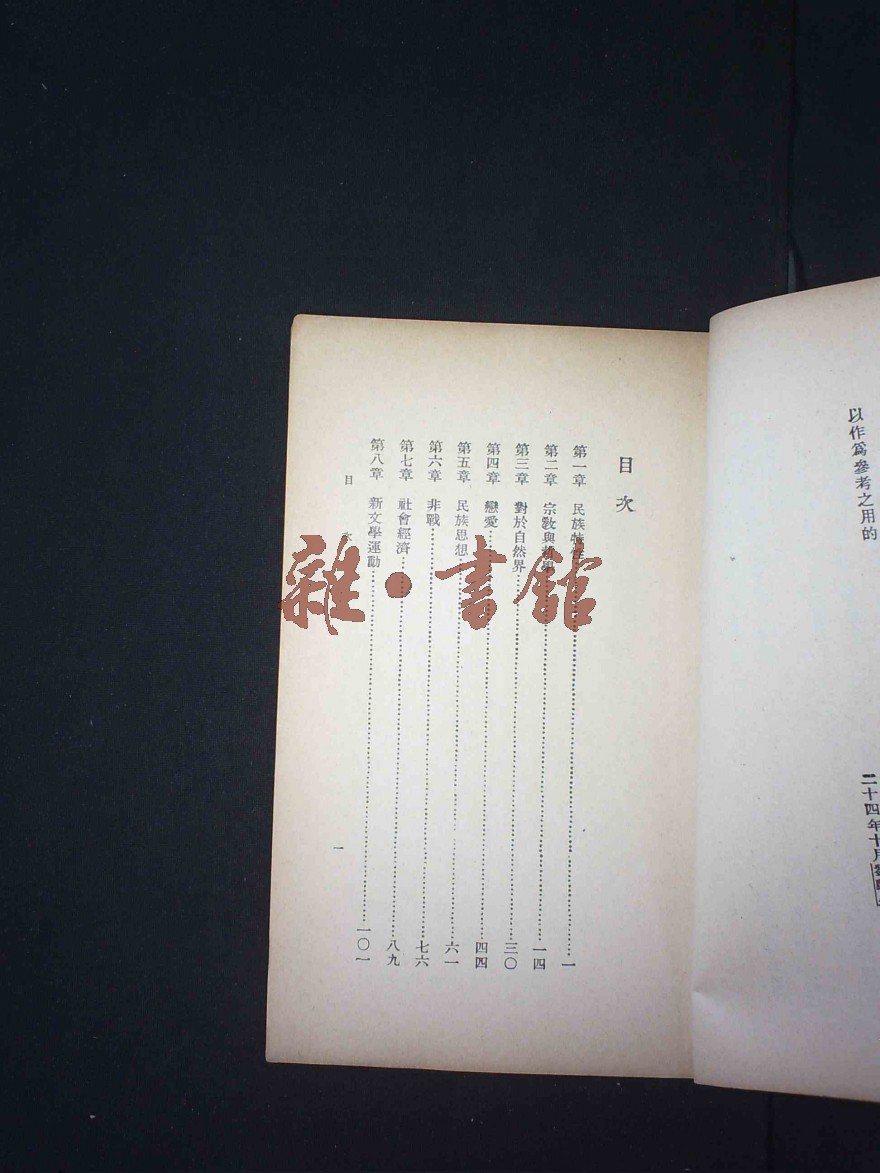 以作爲參考之用的
二十四年十月
目次
第一章 民族特性 一
第二章 宗敎與哲學 一四
第三章 對於自然界 三〇
第四章 戀愛 四四
第五章 民族思想 六一
第六章 非戰 七六
第七章 社會經濟 八九
第八章 新文學運動 一〇一
目次 一
雜·書館